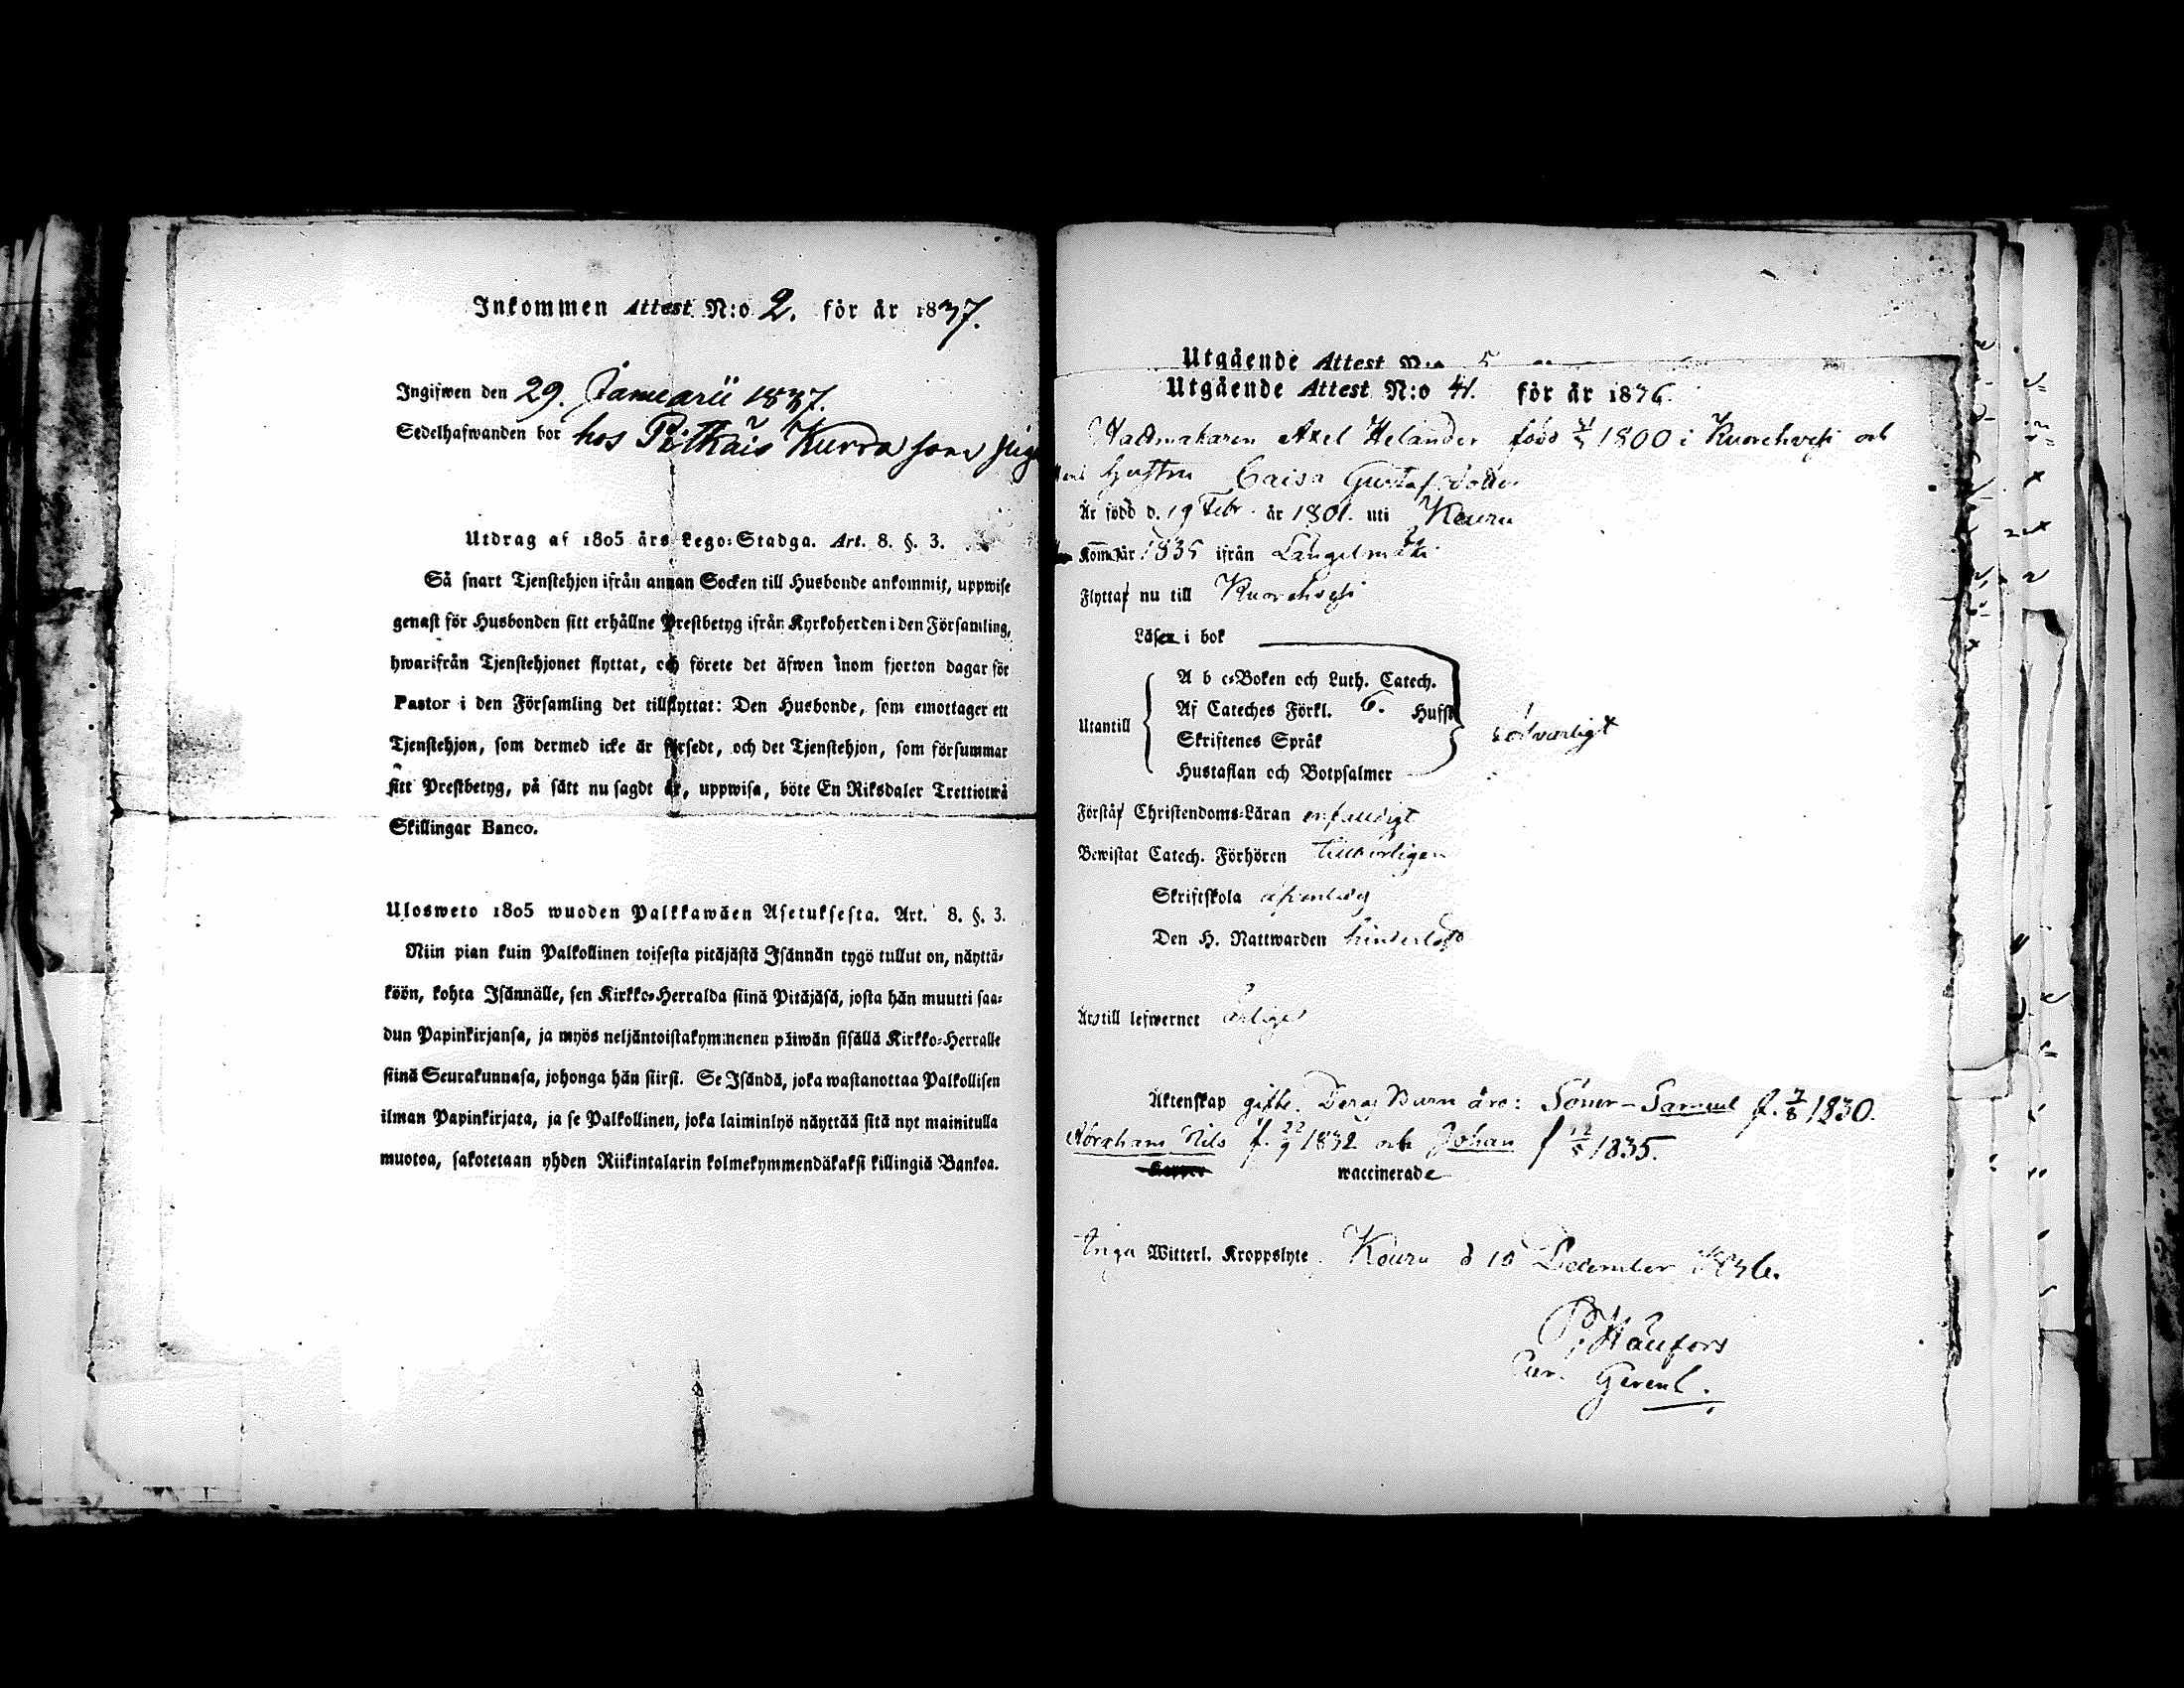 Inkommen Attest N:o 2. för år 1837.
Ingifwen den 29. Januarii 1837.
Sedelhafwanden bor hos Pitkäis Kurra som
Utdrag af 1805 års Lego-Stadga. Art. 8. §. 3.
Så snart Tjenstehjon ifrån annan Socken till Husbonde ankommit, uppwise
genast för Husbonden sitt erhållne Prestbetyg ifrån Kyrkoherden i den Församling,
hwarifrån Tjenstehjonet flyttat, och förete det äfwen inom fjorton dagar för
Pastor i den Församling det tillflyttat: Den Husbonde, som emottager ett
Tjenstehjon, som dermed icke är försedt, och det Tjenstehjon, som försummar
sitt Prestbetyg, på sätt nu sagdt är, uppwisa, böte En Riksdaler Trettiotwå
Skillingar Banco.
Ulosweto 1805 wuoden Palkkawäen Asetuksesta. Art. 8. §. 3.
Niin pian kuin Palkollinen toisesta pitäjästä Isännän tygö tullut on, näyttä-
köön, kohta Isännälle, sen Kirkko-Herralda siinä Pitäjäsä, josta hän muutti saa-
dun Papinkirjansa, ja myös neljäntoistakymmenen päiwän sisällä Kirkko-Herralle
siinä Seurakunnasa, johonga hän siirsi. Se Isändä, joka wastanottaa Palkollisen
ilman Papinkirjata, ja se Palkollinen, joka laiminlyö näyttää sitä nyt mainitulla
muotoa, sakotetaan yhden Riikintalarin kolmekymmendäkaksi killingiä Bankoa.
Utgående Attest N:o 5
Utgående Attest N:o 41. för år 1836.
Axel Helander född 1800 i Kuorehvesi och
Hustru Caisa Gustafsdotter
Är född d. 19 Febr. år 1801. uti Keuru
Kom. år 1835 ifrån Längelmäki
Flyttar nu till Kuorehvesi
Läser i bok
Utantill
A b c-Boken och Luth. Catech.
Af Cateches Förkl. 6. Hufst
Skriftenes Språk
Hustaflan och Botpsalmer
Förstår Christendoms-Läran enfaldigt
Bewistat Catech. Förhören tillbörligen
Skriftskola
Den H. Nattwarden hinderlöst
Är till lefwernet ärliga
Äktenskap gifte. Deras Barn äro: Söner - Samuel f. 7/8 1830.
Abraham Nils f. 22/9 1832 och Johan f 1835.
waccinerade
Inga Witterl. Kroppslyte. Keuru d 10 December 1836.